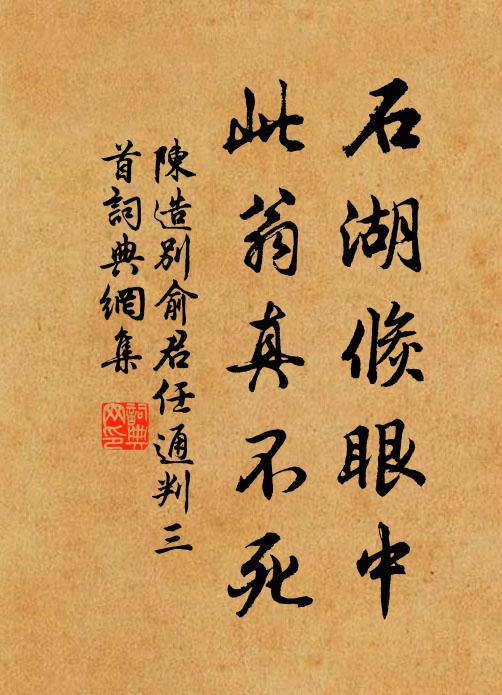 石湖倐眼中
此翁真不死
陳造別俞君任通判三
首詞典網集
詞典網印